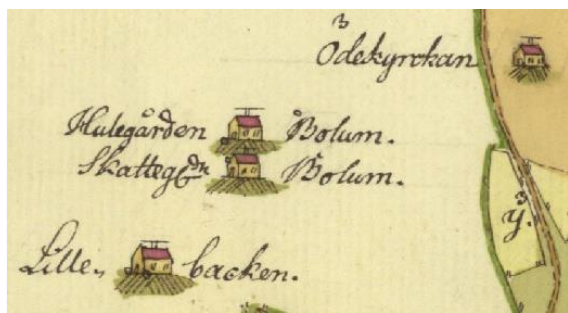 3
Ödekyrckan
Hulegården Bolum.
Skatteg dn Bolum.
3
y.
Lille, backen.